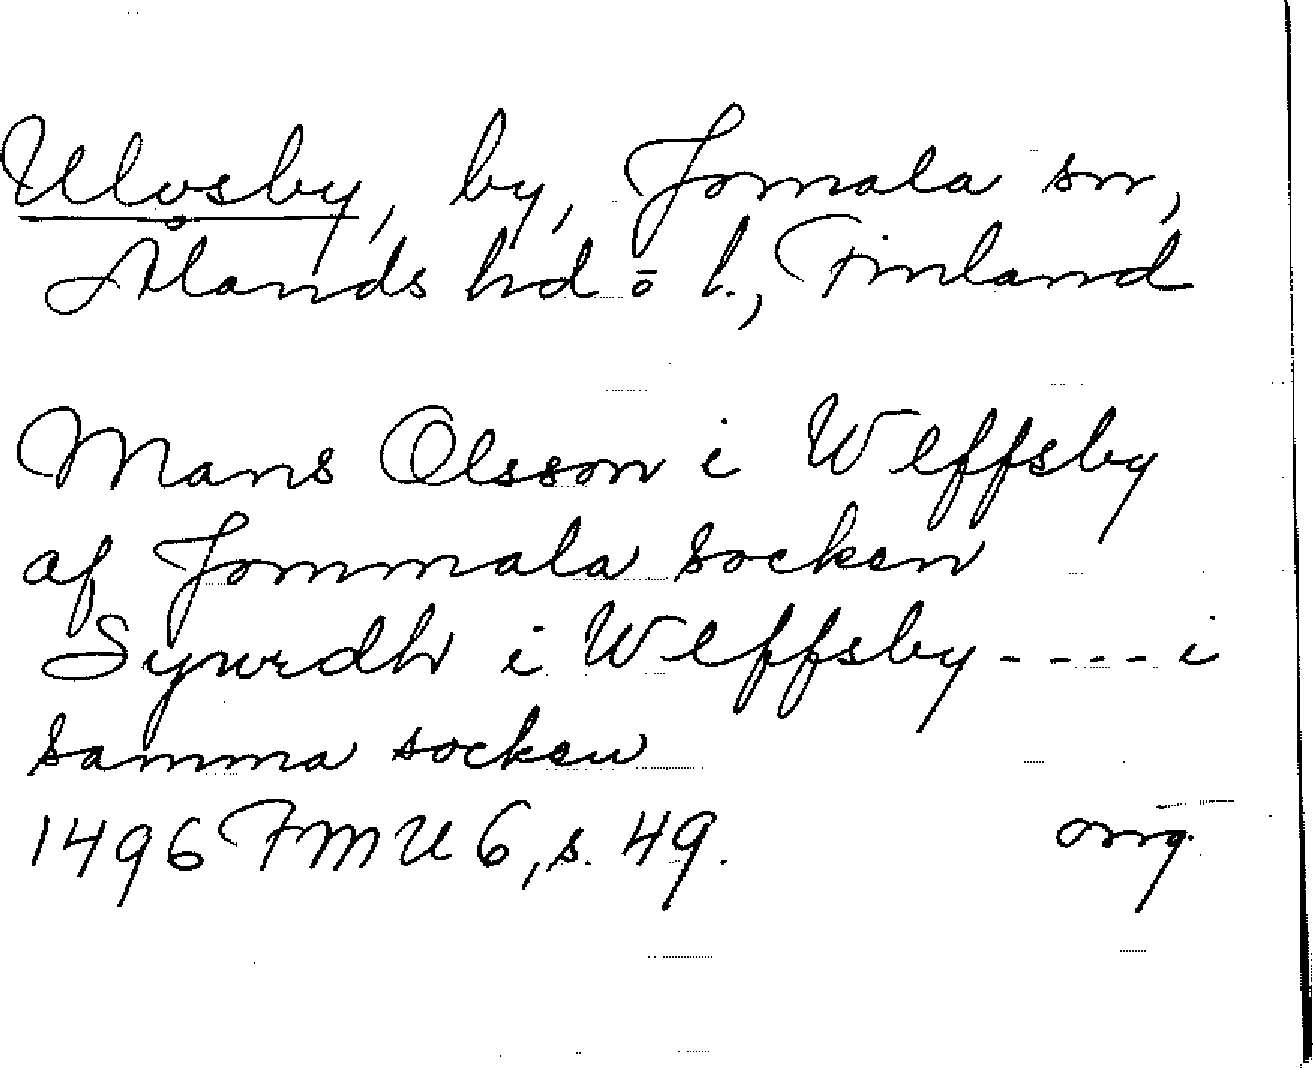 Ulvsby, by, Jomala sn,
Ålands hd o l., Finland
Mans Olsson i Wlffsby
af Jommala socken
Sywrdh i Wlffsby - - - - i
samma socken
1496 FMU 6, s. 49. org.